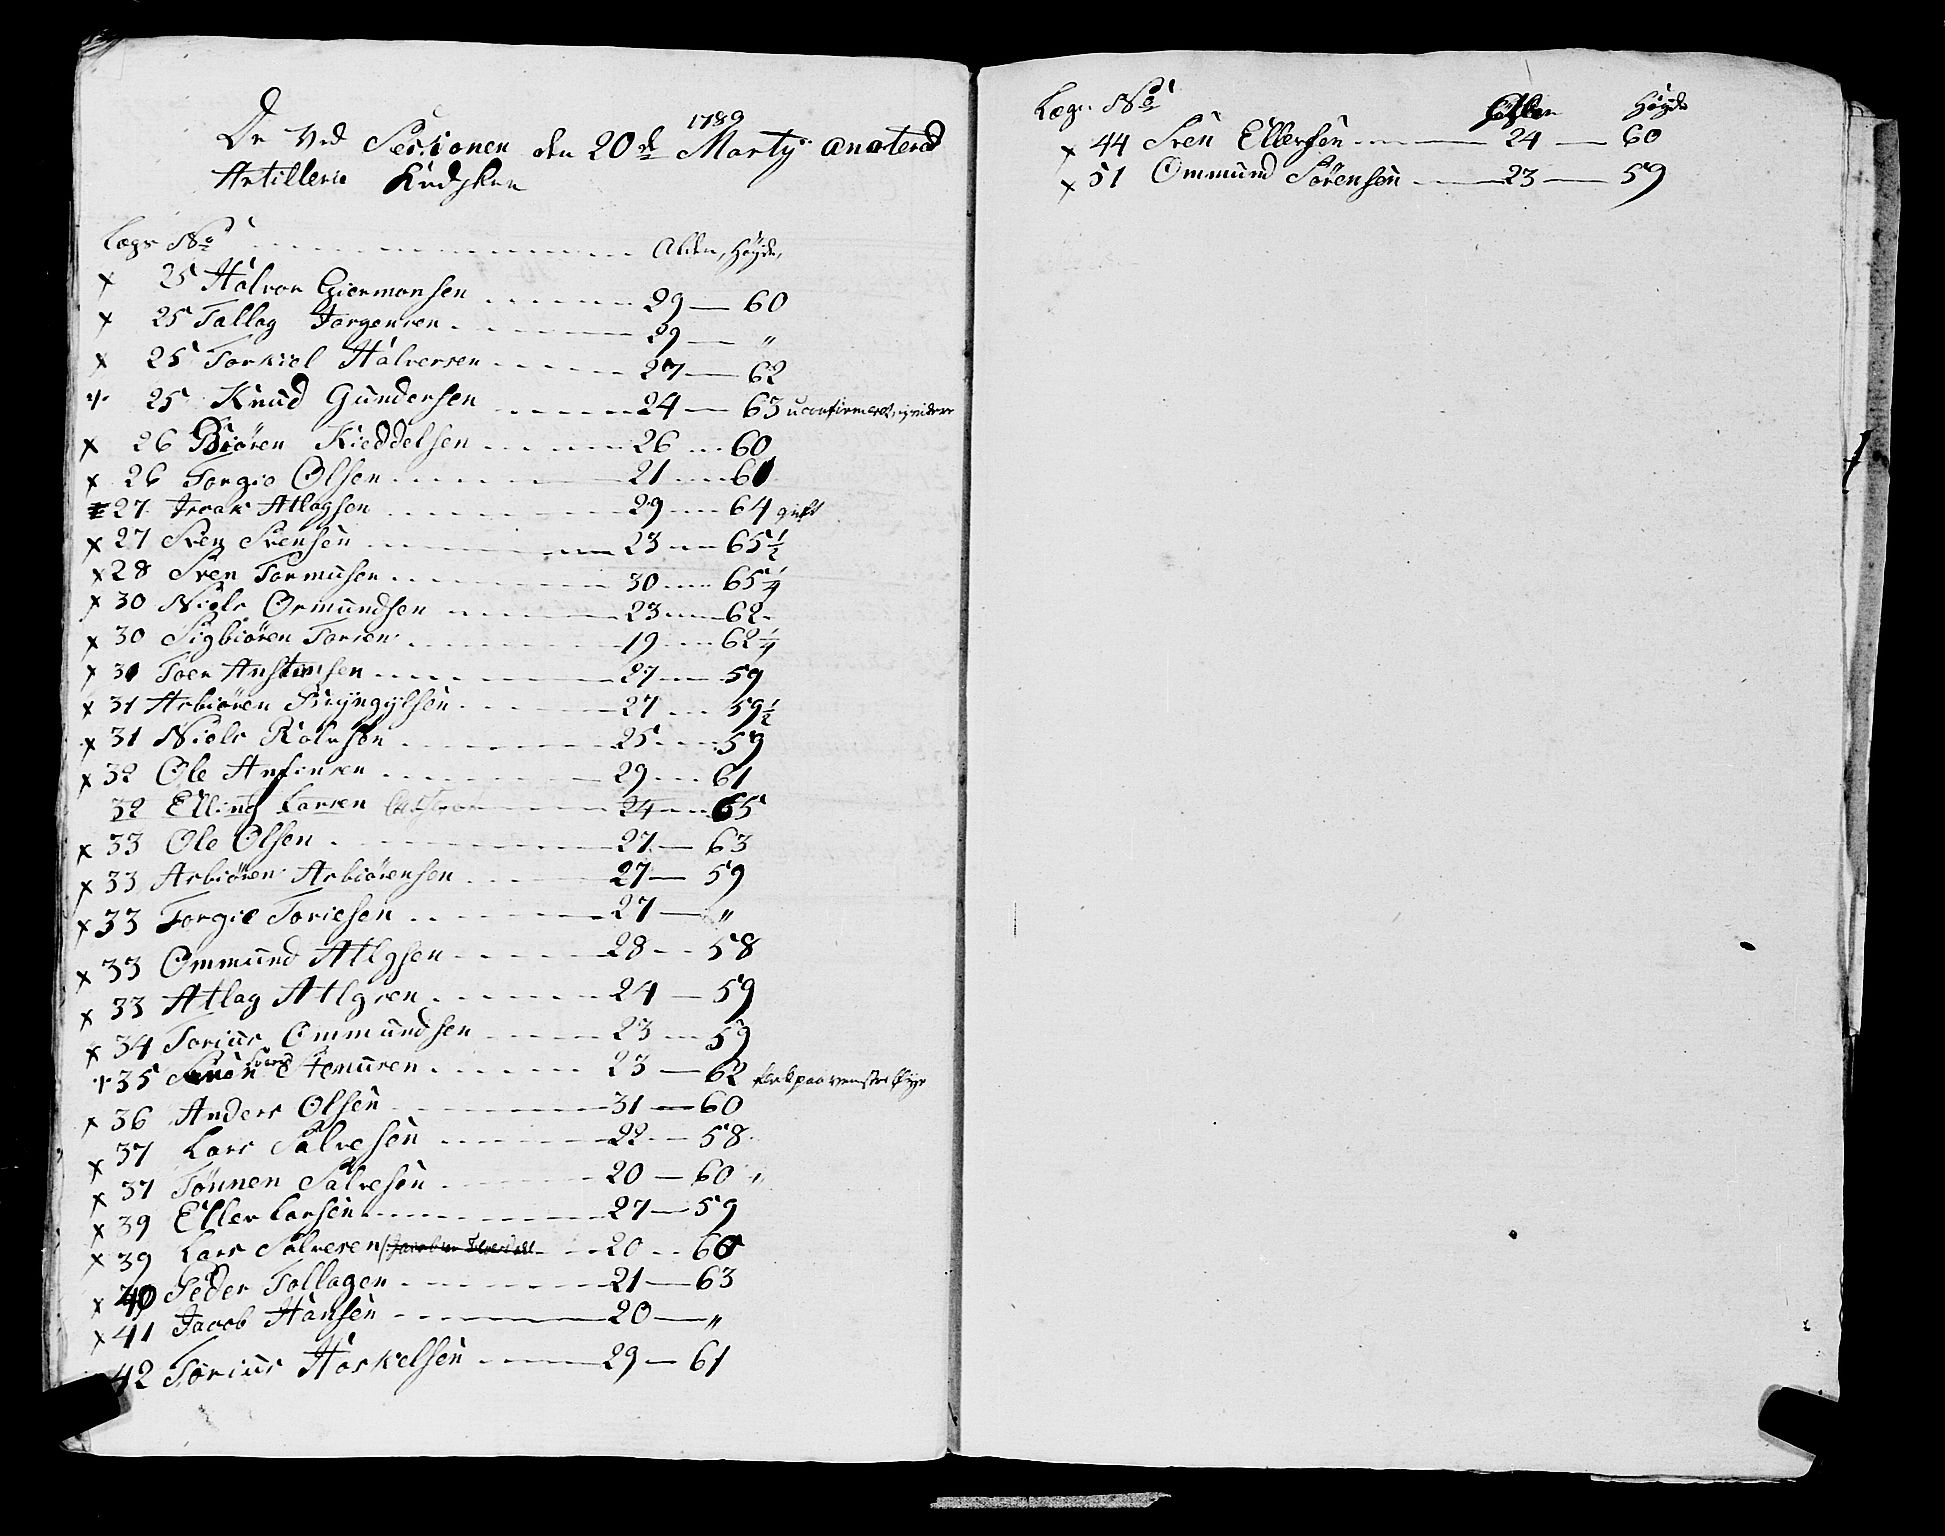 De ved Sessionen den 20de Marty 1789 anoterede
Artillerie Kudsker
Lægs No Alder, Høyde,
x 25 Halvor Giermonsen 29 60
x 25 Tallag Jorgensen 29 "
x 25 Torkiel Halversen 27 62
x 25 Knud Gundersen 24 63 uconfirmeret
x 26 Biören Kieddelsen 26 60
x 26 Torgie Olsen 21 61
27 Atlagsen 29 64 gift
x 27 Sven Svensen 23 65 1/2
x 28 Sven Tormusen 30 65 1/4
x 30 Niels Omundsen 23 62
x 30 Sigbiören Torsen 19 62 1/4
x 31 Toer Anstensen 27 59
x 31 Asbiören 27 59 1/2
x 31 Niels Rolvsen 25 59
x 32 Ole Anfinsen 29 61
32 Elling Larsen 24 65
x 33 Ole Olsen 27 63
x 33 Asbiören Asbiörensen 27 59
x 33 Torgie Toriesen 27 "
x 33 Ommund Atlgsen 28 58
x 33 Atlag Atlgsen 24 59
x 34 Torius Ommundsen 23 59
x 35 Aamunsen 23 62 flek paa venstre Øye
x 36 Anders Olsen 31 60
x 37 Lars Salvesen 22 58
x 37 Tönnen Salvesen 20 60 "
x 39 Eller Larsen 27 59
x 39 Lars Salvesen 20 60
x 40 Peder Tollagen 21 63
x 41 Jacob Hansen 20 "
42 Torius Haskelsen 29 61
Lægs No Alder Høyde
x 44 Sven Ellersen 24 60
x 51 Ommund Sörensen 23 59